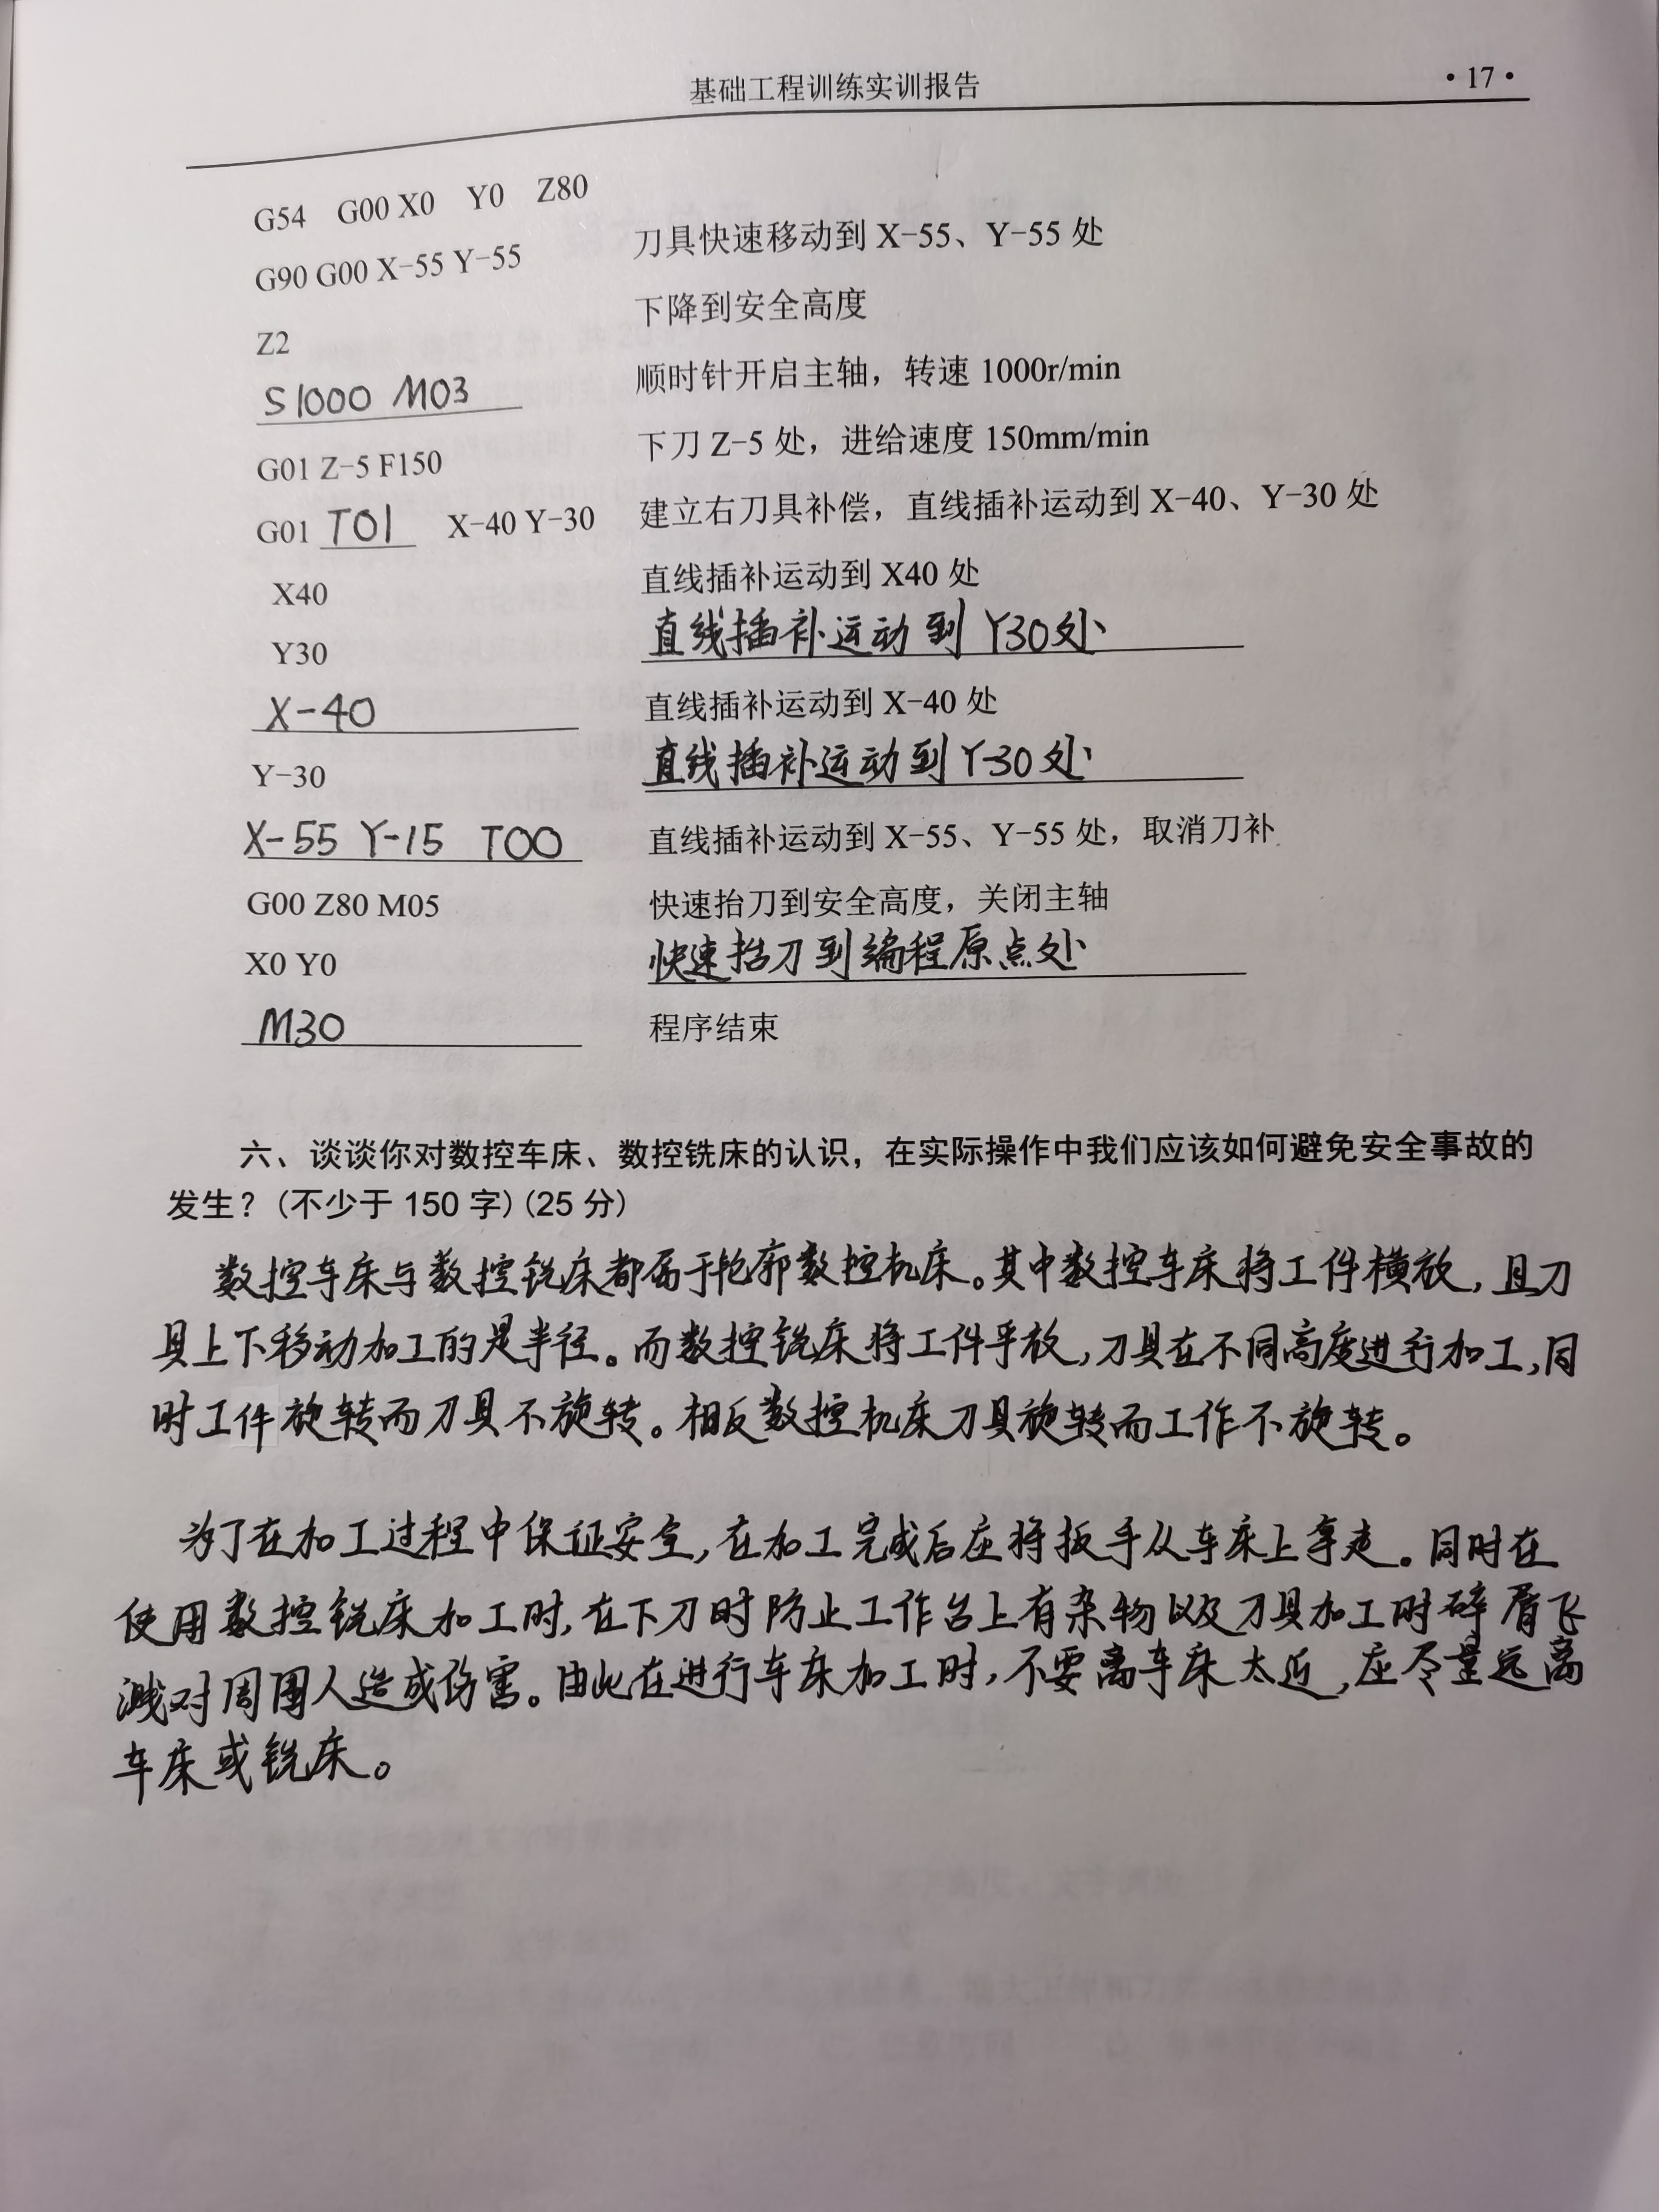 基础工程训练实训报告 ·17·
G54 G00 X0 Y0 Z80
G90 G00 X-55 Y-55 刀具快速移动到 X-55、Y-55 处
Z2 下降到安全高度
S1000 M03 顺时针开启主轴，转速 1000r/min
G01 Z-5 F150 下刀 Z-5 处，进给速度 150mm/min
G01 T01 X-40 Y-30 建立右刀具补偿，直线插补运动到 X-40、Y-30 处
X40 直线插补运动到 X40 处
Y30 直线插补运动到 Y30处
X-40 直线插补运动到 X-40 处
Y-30 直线插补运动到 Y-30处
X-55 Y-15 T00 直线插补运动到 X-55、Y-55 处，取消刀补
G00 Z80 M05 快速抬刀到安全高度，关闭主轴
X0 Y0 快速抬刀到编程原点处
M30 程序结束
六、谈谈你对数控车床、数控铣床的认识，在实际操作中我们应该如何避免安全事故的
发生？(不少于 150 字)(25 分)
数控车床与数控铣床都属于轮廓数控机床。其中数控车床将工件横放，且刀
具上下移动加工的是半径。而数控铣床将工件平放，刀具在不同高度进行加工，同
时工件旋转而刀具不旋转。相反数控机床刀具旋转而工作不旋转。
为了在加工过程中保证安全，在加工完成后应将扳手从车床上拿走。同时在
使用数控铣床加工时，在下刀时防止工作台上有杂物以及刀具加工时碎屑飞
溅对周围人造成伤害。由此在进行车床加工时，不要离车床太近，应尽量远离
车床或铣床。